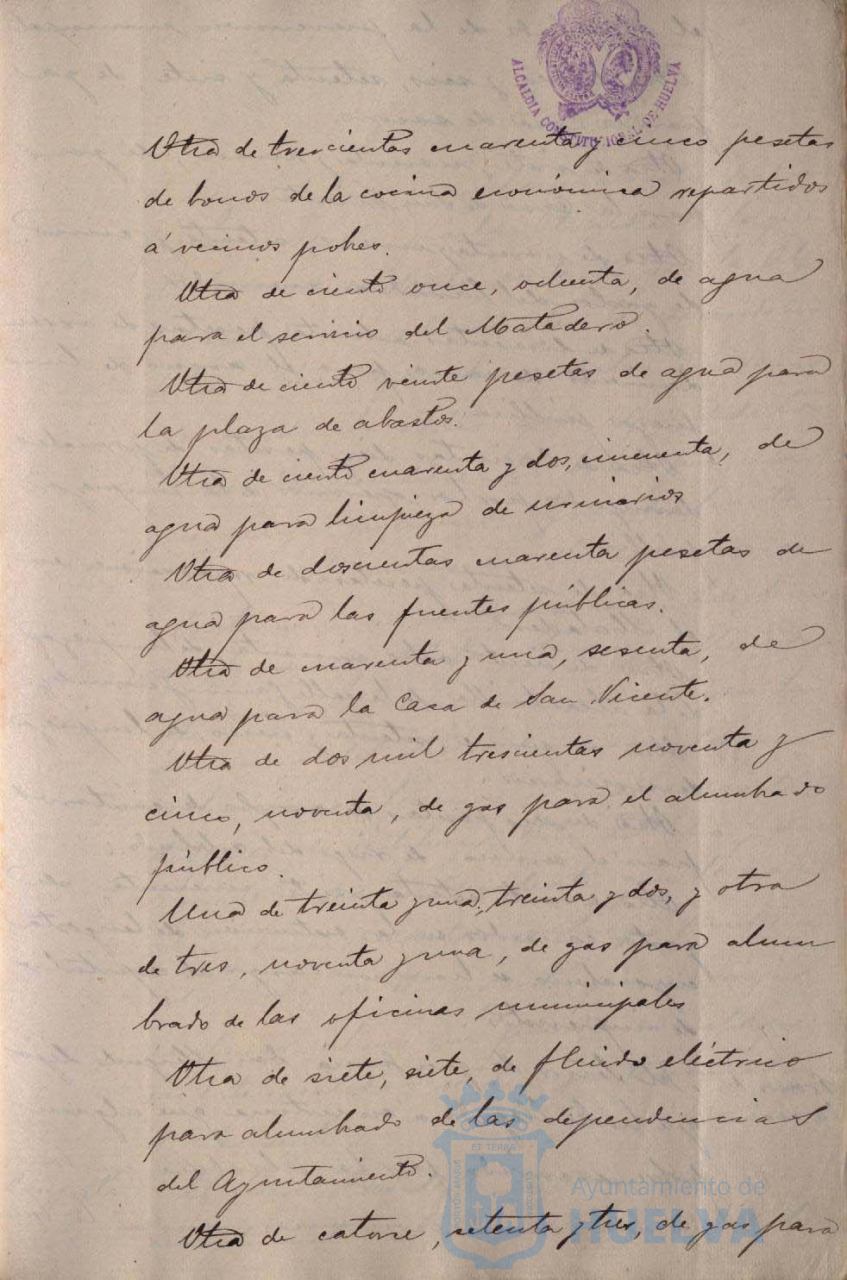 ALCALDIA CONSTITUCIONAL DE HUELVA
Otra de trescientas cuarenta y cinco pesetas
de bonos de la cocina económica repartidos
á vecinos pobres.
Otra de ciento once, ochenta, de agua
para el servicio del Matadero.
Otra de ciento veinte pesetas de agua para
la plaza de abastos.
Otra de ciento cuarenta y dos, cincuenta, de
agua para limpieza de urinarios
Otra de doscientas cuarenta pesetas de
agua para las fuentes públicas.
Otra de cuarenta y una, sesenta, de
agua para la Casa de San Vicente.
Otra de dos mil trescientas noventa y
cinco, noventa, de gas para el alumbrado
público.
Una de treinta y una, treinta y dos, y otra
de tres, noventa y una, de gas para alum
brado de las oficinas municipales
Otra de siete, siete, de fluido eléctrico
para alumbrado de las dependencias
del Ayuntamiento.
Otra de catorse, setenta y tres, de gas para
Ayuntamiento de
HUELVA